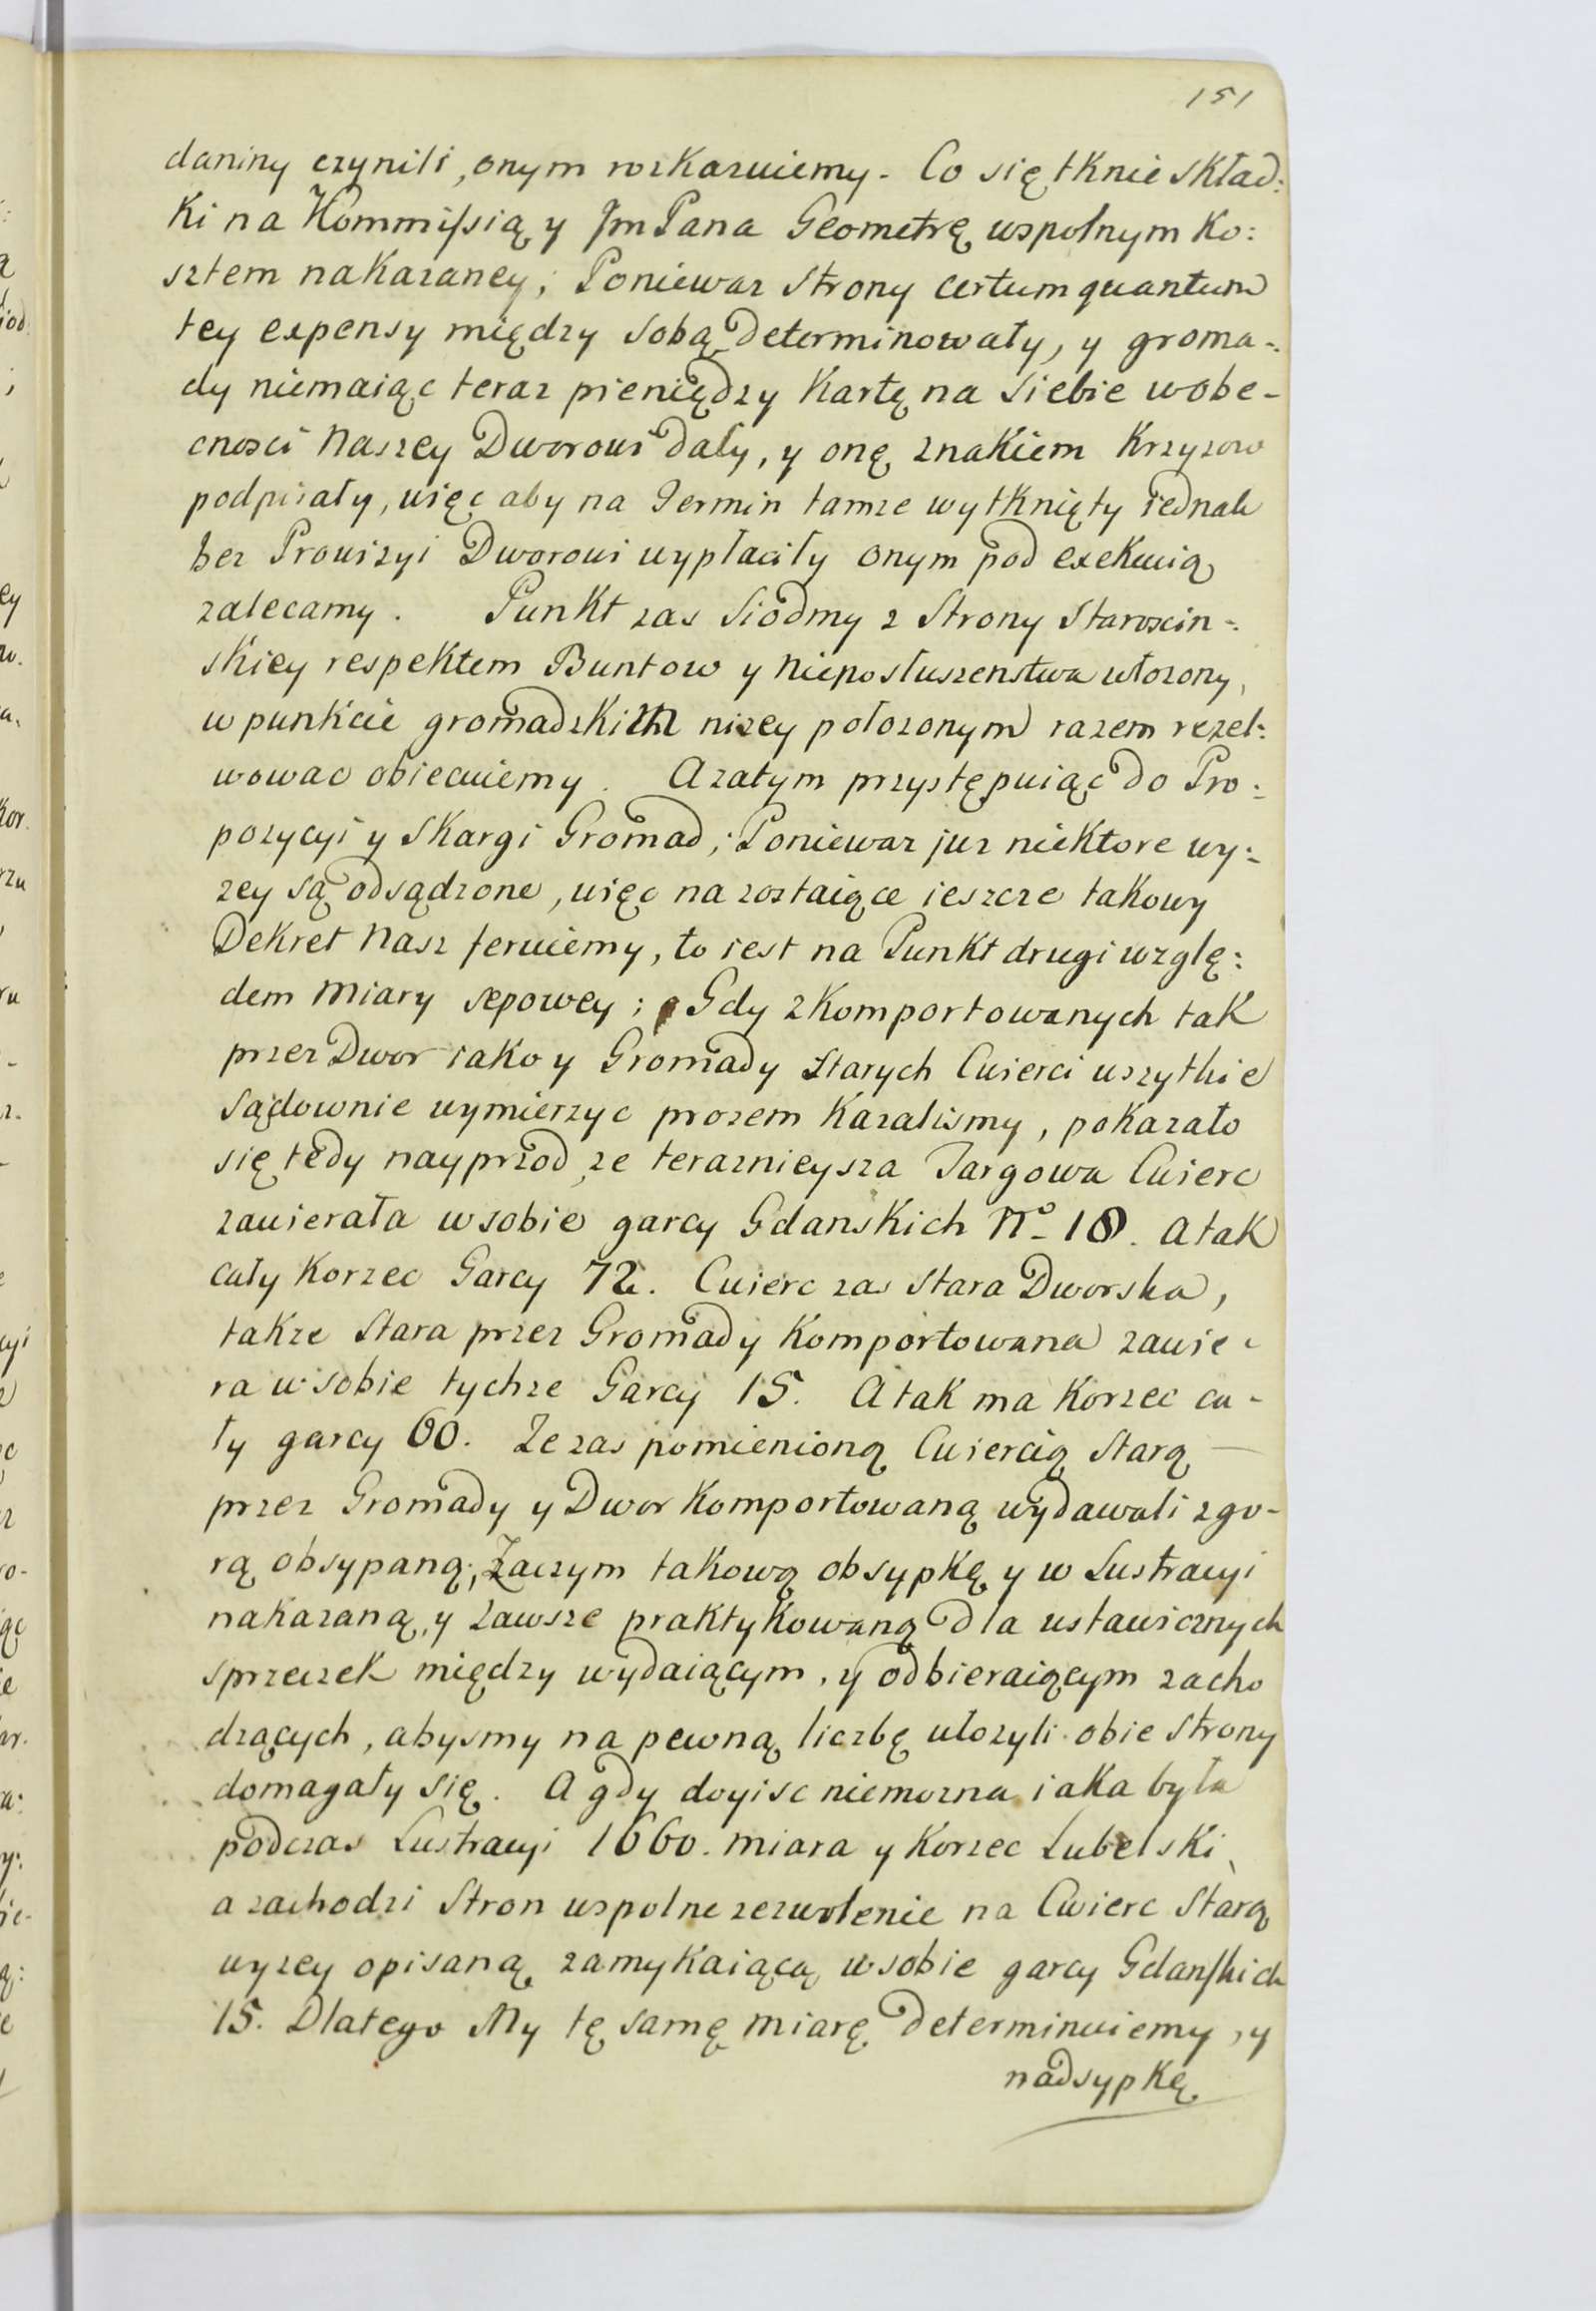 151
daniny czynili, onym rozkazuiemy. Co się tknie skład:
ki na Kommissią y Jm Pana Geometrę wspolnym ko:
sztem nakazaney; Poniewaz Strony certum quantum
tey expensy między sobą determinowały, y groma-:
dy niemaiąc teraz pieniędzy kartę na siebie wobe-
cnosci Naszey Dworowi dały, y onę znakiem krzyzow
podpisały, więc aby na Termin tamze wytknięty iednak
bez Prowizyi Dworowi wypłaciły onym pod exekucią
zalecamy. Punkt zas Siodmy z Strony Staroscin-:
skiey respektem Buntow y Nieposłuszenstwa włozony,
w punkcie gromadzkim nizey połozonym razem rezel:
wowac obiecuiemy. A zatym przystępuiąc do Pro:
pozycyi y Skargi Gromad; Poniewaz juz niektore wy:
zey są odsądzone, więc na zostaiące ieszcze takowy
Dekret Nasz feruiemy, to iest na Punkt drugi wzglę:
dem Miary sepowey; Gdy z komportowanych tak
przez Dwor iako y Gromady Starych Cwierci wszytkie
sądownie wymierzyc prozem kazalismy, pokazało
się tedy nayprzod, ze teraznieysza Targowa Cwierc
zawierała w sobie garcy Gdanskich No 18. a tak
cały Korzec Garcy 72. Cwierc zas Stara Dworska,
takze Stara przez Gromady komportowana zawie-
ra w sobie tychze Garcy 15. A tak ma Korzec ca-
ły garcy 60. Ze zas pomienioną Cwiercią Starą
przez Gromady y Dwor komportowaną wydawali z go-
rą obsypaną; Zaczym takową obsypkę y w Lustracyi
nakazaną, y zawsze praktykowaną dla ustawicznych
sprzeczek między wydaiącym, y odbieraiącym zacho
dzących, abysmy na pewną liczbę ułozyli obie Strony
domagały się. A gdy doyisc niemozna iaka była
podczas Lustracyi 1660. miara y Korzec Lubelski,
a zachodzi Stron wspolne zezwolenie na Cwierc Starą
wyzey opisaną, zamykaiącą w sobie garcy Gdanskich
15. Dlatego My tę samę miarę determinuiemy, y
nadsypkę